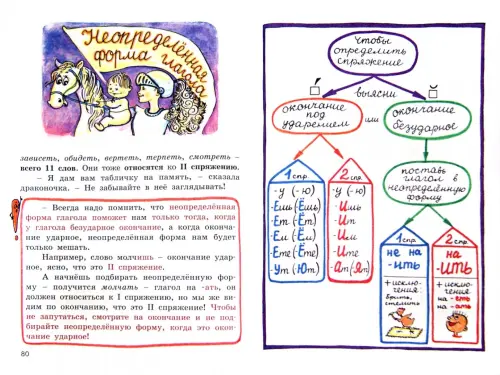 Неопределённая
форма глагола
зависеть, обидеть, вертеть, терпеть, смотреть –
всего 11 слов. Они тоже относятся ко II спряжению.
– Я дам вам табличку на память, – сказала
дракончика. – Не забывайте в неё заглядывать!
– Всегда надо помнить, что неопределённая
форма глагола поможет нам только тогда, когда
у глагола безударное окончание, а когда оконча-
ние ударное, неопределённая форма нам будет
только мешать.
Например, слово молчишь – окончание удар-
ное, ясно, что это II спряжение.
А начнёшь подбирать неопределённую фор-
му – получится молчать – глагол на -ать, он
должен относиться к I спряжению, но мы же ви-
дим по окончанию, что это II спряжение! Чтобы
не запутаться, смотрите на окончание и не под-
бирайте неопределённую форму, когда это окон-
чание ударное!
80
Чтобы
определить
спряжение
выясни
окончание
под
ударением
или
окончание
безударное
поставь
глагол в
неопределённую
форму
1 спр.
-у (-ю)
-Ешь (Ёшь)
-Ет (Ёт)
-Ем (Ём)
-Ете (Ёте)
-Ут (Ют)
2 спр.
-у (-ю)
-Ишь
-Ит
-Им
-Ите
-Ат (Ят)
1 спр.
не на
-ить
+ исклю-
чения
брить,
стелить
2 спр.
на
-ить
+ исклю-
чения
на -еть
на -ать